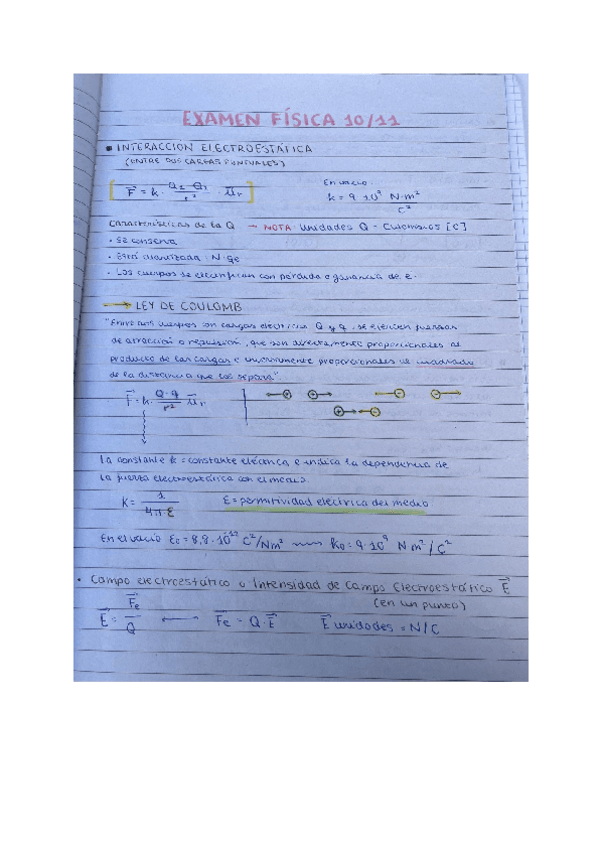 EXAMEN FÍSICA 10/11
▪ INTERACCIÓN ELECTROESTÁTICA
(ENTRE DOS CARGAS PUNTUALES)
F⃗ = k · Q₁ · Q₂ / r² · u⃗r
En vacío.
k = 9 · 10⁹ N·m² / C²
Características de la Q → NOTA: Unidades Q = Culombios [C]
· Se conserva
· Está cuantizada: N · qe
· Los cuerpos se electrifican con pérdida o ganancia de e-
→ LEY DE COULOMB
"Entre dos cuerpos con cargas eléctricas Q y q, se ejercen fuerzas
de atracción o repulsión, que son directamente proporcionales al
producto de las cargas e inversamente proporcionales al cuadrado
de la distancia que las separa"
F⃗ = k · Q · q / r² · u⃗r
⊕ ⊕ ⊖ ⊖
⊕ ⊖
La constante k = constante eléctrica, e indica la dependencia de
la fuerza electroestática con el medio
K = 1 / 4π·ε
ε = permitividad eléctrica del medio
En el vacío ε₀ = 8,9 · 10⁻¹² C²/Nm² K₀ = 9 · 10⁹ N m²/C²
· Campo electroestático o Intensidad de Campo Electroestático E⃗
(en un punto)
E⃗ = F⃗e / Q ← F⃗e = Q · E⃗ E⃗ unidades = N/C